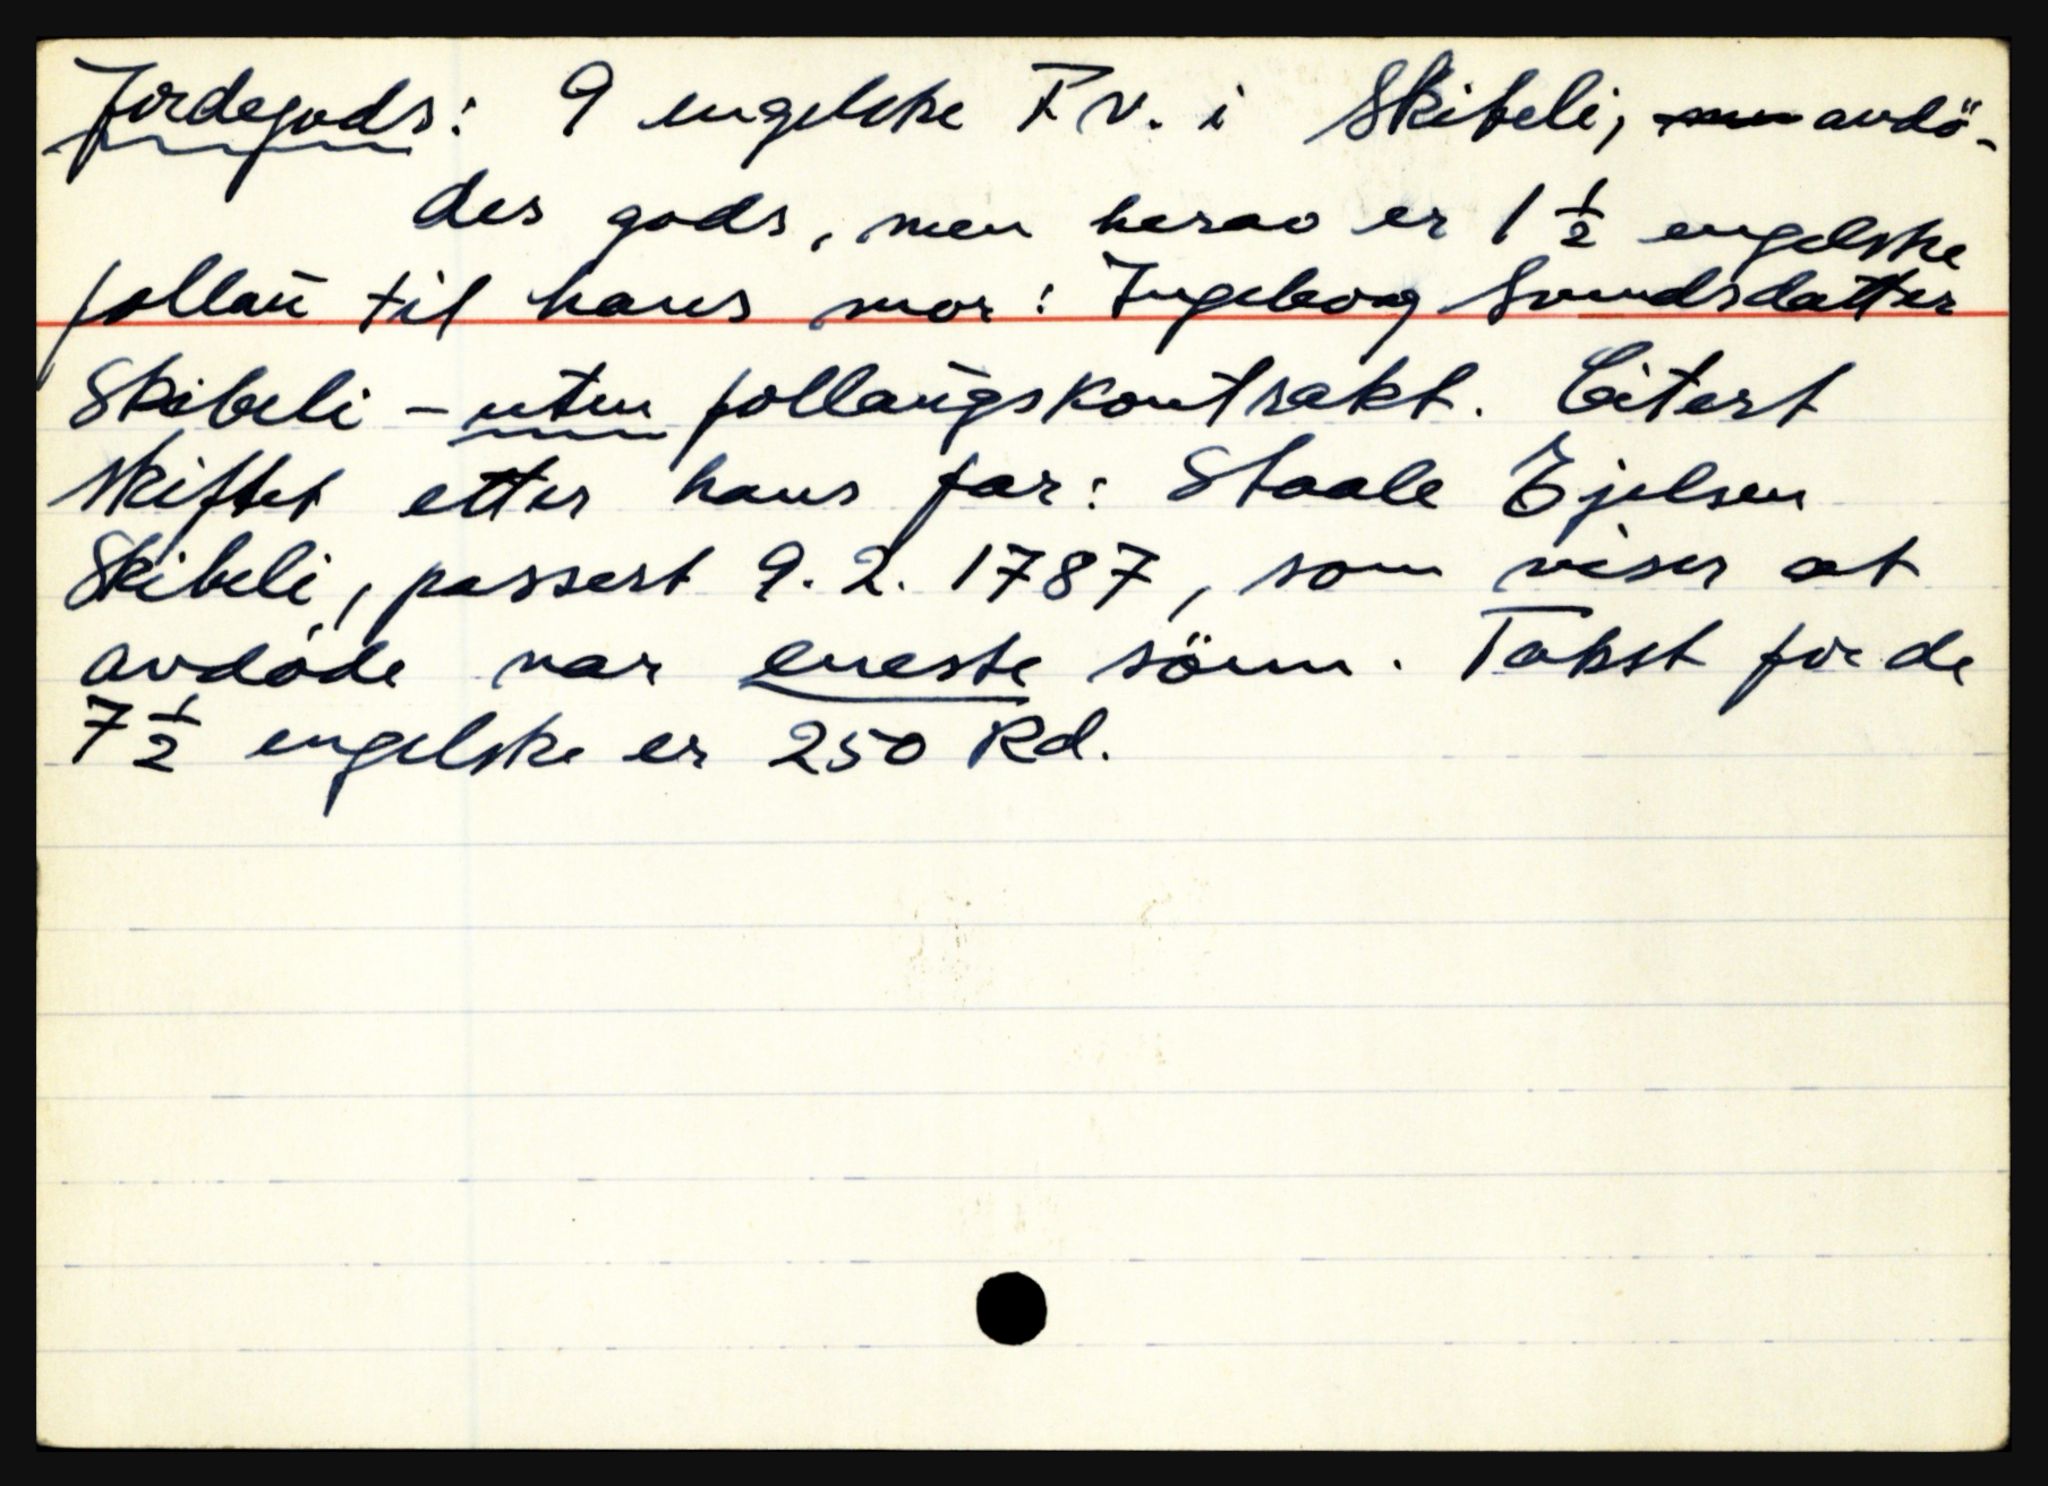 Jordegods: 9 engelske F.V. i Skibeli, ~~men~~ avdö-
des gods, men herav er 1 1/2 engelske
follaü til hans mor: Ingeborg Svendsdatter
Skibeli - uten follaügskontrakt. Citert
skiftet etter hans far: Staale Ejelsen
Skibeli, passert 9.2.1787, som viser at
avdöde var eneste sönn. Takst for de
7 1/2 engelske er 250 Rd.